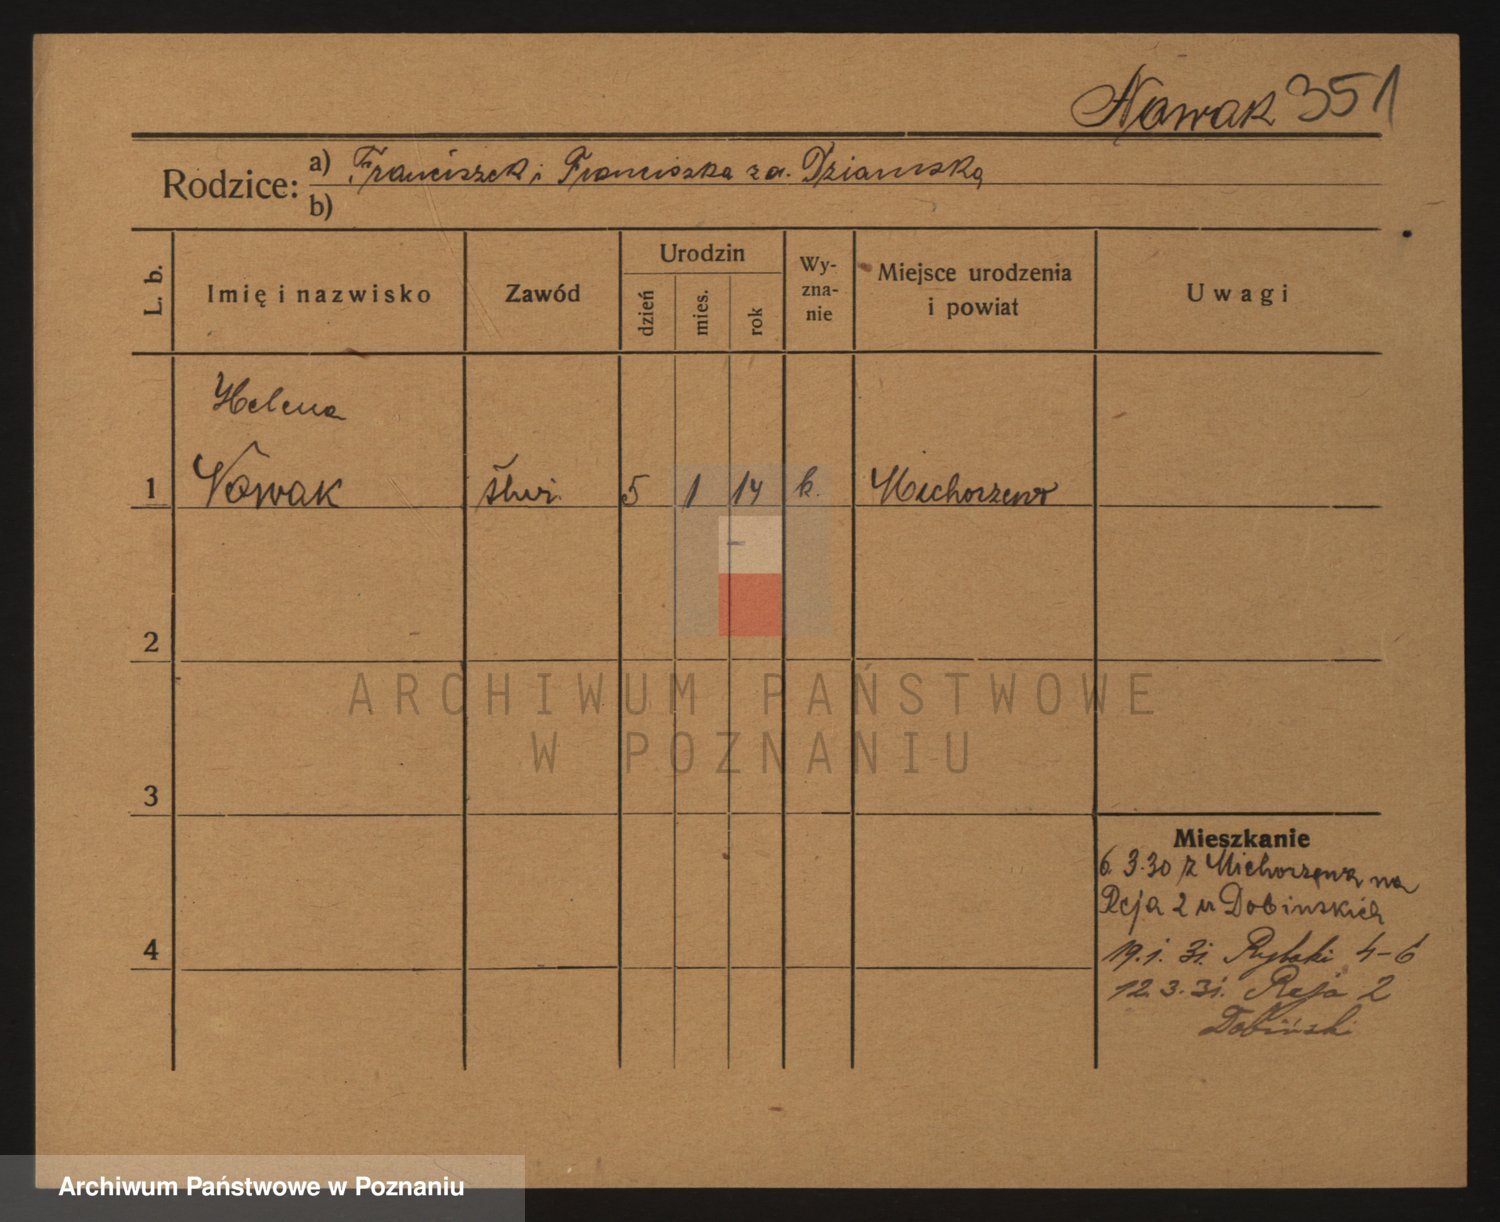 Nowak 351
Rodzice: a) Franciszek i Franciszka za. Dziamską
b)
L. b. Imię i nazwisko Zawód Urodzin dzień mies. rok Wy-zna-nie Miejsce urodzenia i powiat Uwagi
Helena
1 Nowak 5 1 14 k. Michorzewo
2
ARCHIWUM PAŃSTWOWE
W POZNANIU
3
Mieszkanie
6. 3.30 z Michorzewa na
Reja 2 u Dobinskich
4
19.1.31. Rybaki 4-6
12.3.31. Reja 2
Dobiński
Archiwum Państwowe w Poznaniu